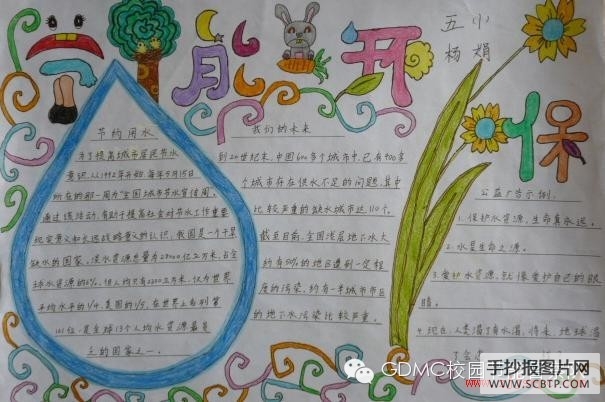 能开保
五 小
杨 娟
节约用水
为了提高城市居民节水
意识,从1992年开始,每年5月15日
所在的那一周为"全国城市节水宣传周。
通过这活动,有助于提高社会对节水工作重要
现实意义和长远战略意义的认识,我国是一个干旱
缺水的国家,淡水资源总量为28000亿立方米,占全
球水资源的6%,但人均只有2200立方米,仅为世界
平均水平的1/4,美国的1/5,在世界上名列第
121位,是全球13个人均水资源最贫
乏的国家之一。
我们的未来
到20世纪末,中国600多个城市中,已有400多
个城市存在供水不足的问题,其中
比较严重的缺水城市达110个。
截至目前,全国浅层地下水大
约有50%的地区遭到一定程
度的污染,约有一半城市市区
的地下水污染比较严重。
公益广告示例:
1.保护水资源,生命真永远。
2.水是生命之源。
3.爱护水资源,就像爱护自己的眼
睛。
4.现在,人类渴了有水喝,将来,地球渴
了会
GDMC校园
手抄报图片网
WWW.SCBTP.COM